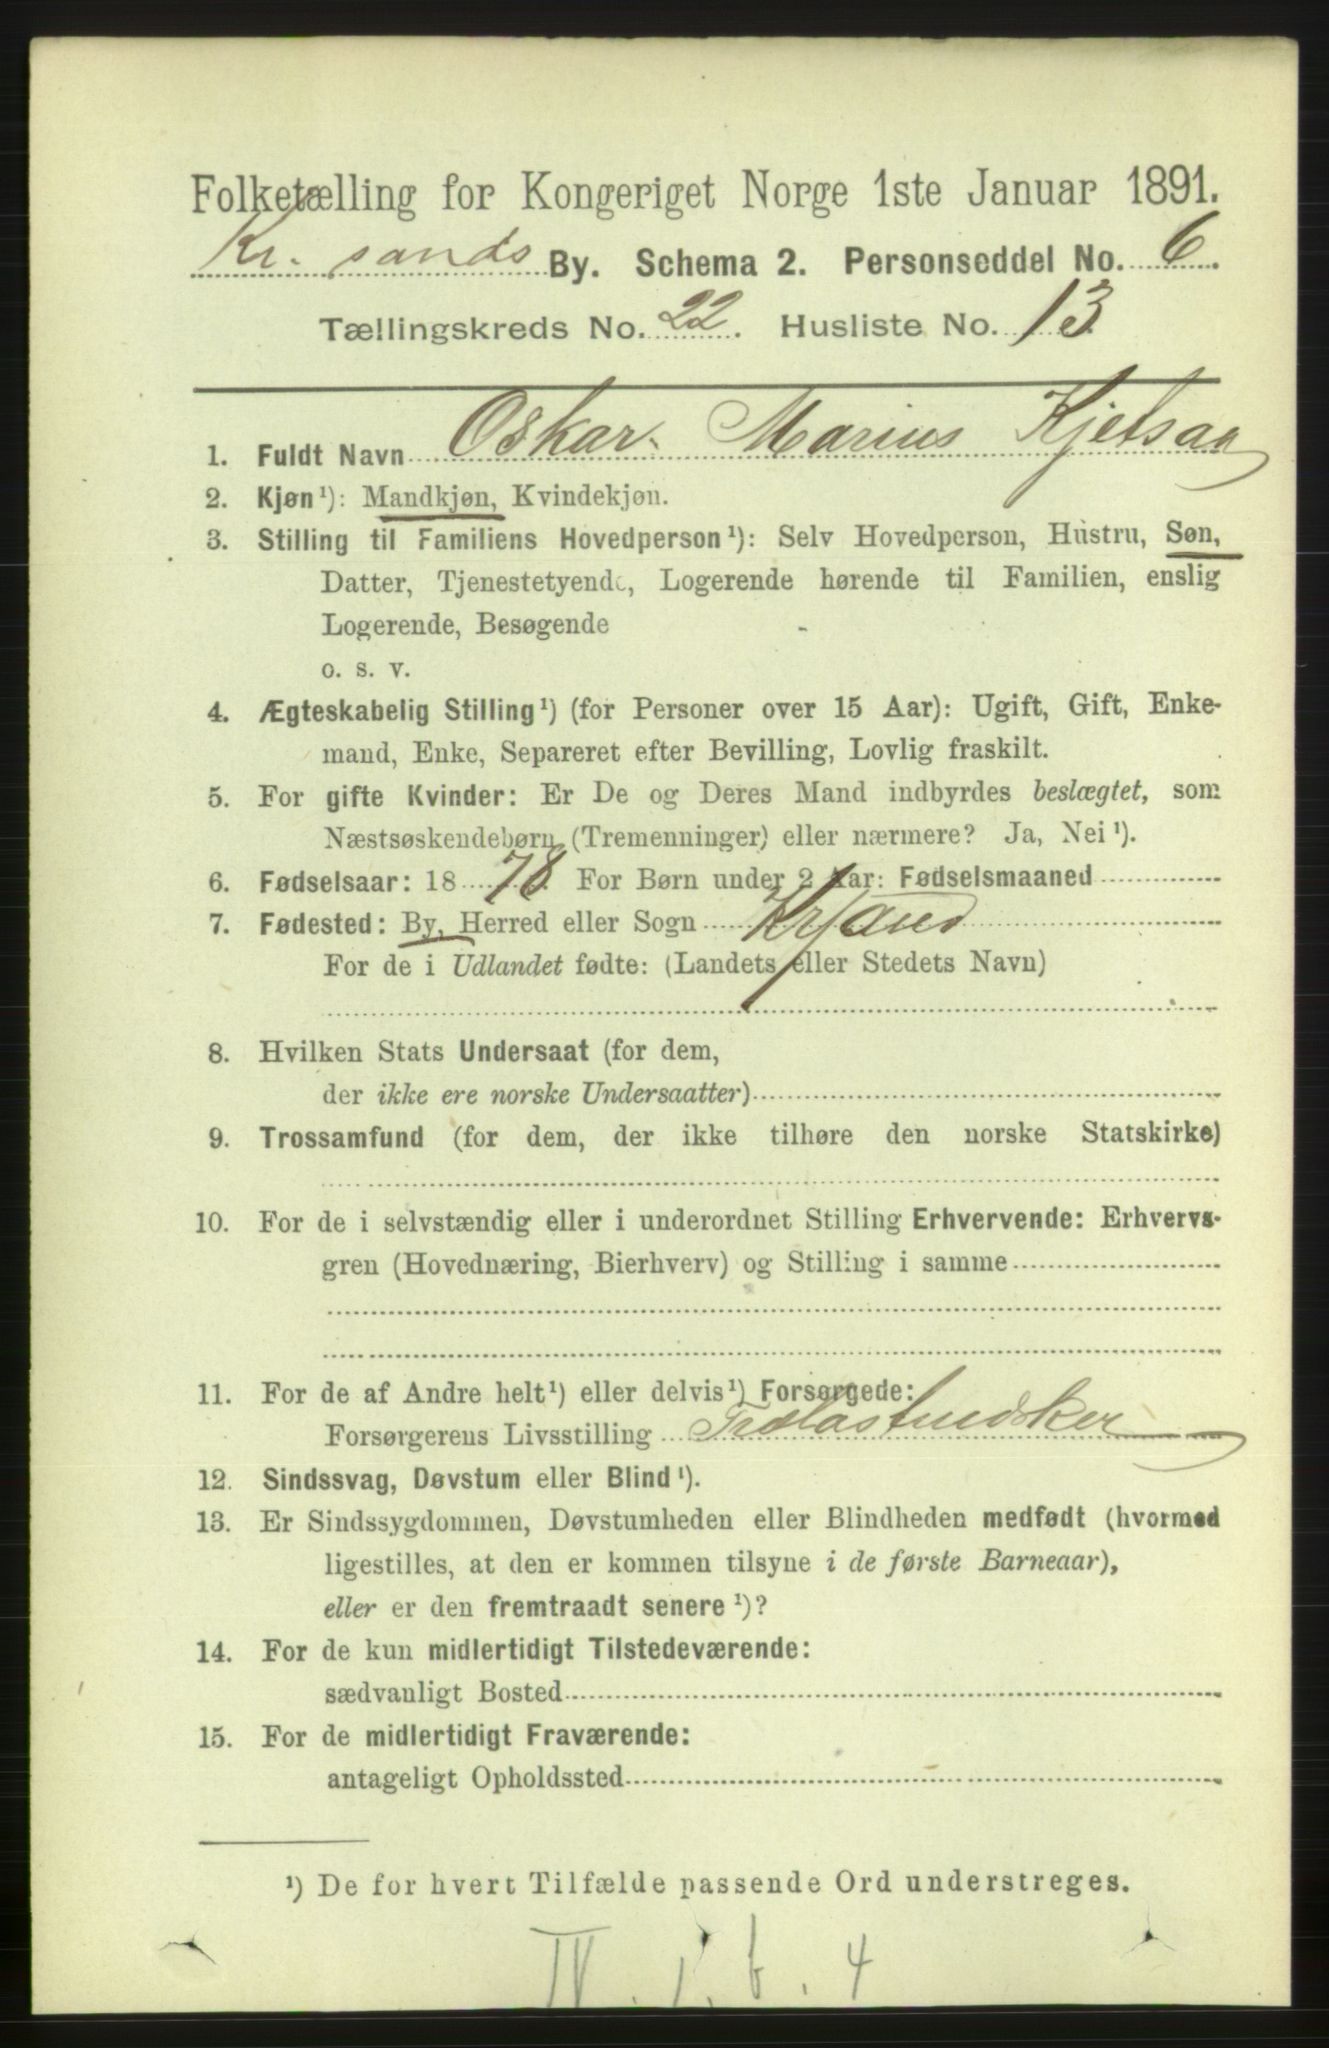 Folketælling for Kongeriget Norge 1ste Januar 1891.
Kr. sands By. Schema 2. Personseddel No. 6.
Tællingskreds No. 22. Husliste No. 13
1. Fuldt Navn Oskar Marius Kjetsaa
2. Kjøn¹): Mandkjøn, Kvindekjøn.
3. Stilling til Familiens Hovedperson¹): Selv Hovedperson, Hustru, Søn,
Datter, Tjenestetyende, Logerende hørende til Familien, enslig
Logerende, Besøgende
o. s. v.
4. Ægteskabelig Stilling¹) (for Personer over 15 Aar): Ugift, Gift, Enke-
mand, Enke, Separeret efter Bevilling, Lovlig fraskilt.
5. For gifte Kvinder: Er De og Deres Mand indbyrdes beslægtet, som
Næstsøskendebørn (Tremenninger) eller nærmere? Ja, Nei¹).
6. Fødselsaar: 1878. For Børn under 2 Aar: Fødselsmaaned
7. Fødested: By, Herred eller Sogn Kr/sand
For de i Udlandet fødte: (Landets eller Stedets Navn)
8. Hvilken Stats Undersaat (for dem,
der ikke ere norske Undersaatter)
9. Trossamfund (for dem, der ikke tilhøre den norske Statskirke)
10. For de i selvstændig eller i underordnet Stilling Erhvervende: Erhvervs-
gren (Hovednæring, Bierhverv) og Stilling i samme
11. For de af Andre helt¹) eller delvis¹) Forsørgede:
Forsørgerens Livsstilling
12. Sindssvag, Døvstum eller Blind¹).
13. Er Sindssygdommen, Døvstumheden eller Blindheden medfødt (hvormed
ligestilles, at den er kommen tilsyne i de første Barneaar),
eller er den fremtraadt senere¹)?
14. For de kun midlertidigt Tilstedeværende:
sædvanligt Bosted
15. For de midlertidigt Fraværende:
antageligt Opholdssted
¹) De for hvert Tilfælde passende Ord understreges.
IV. 1. b. 4